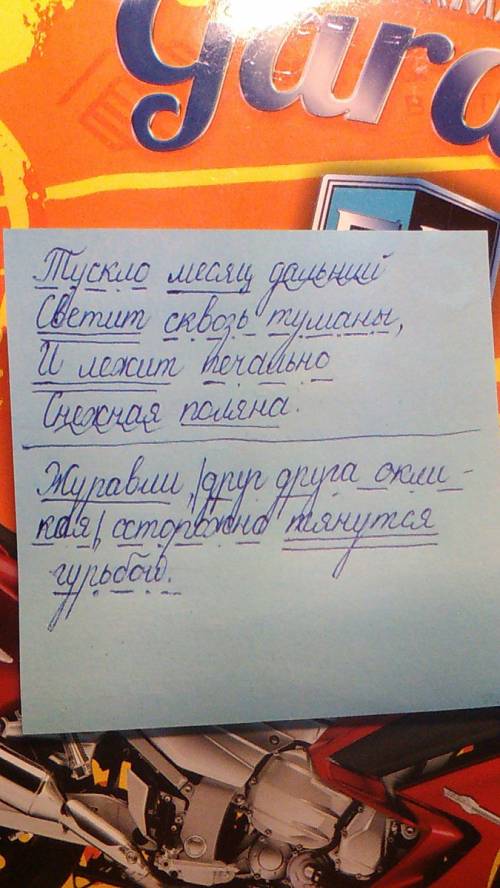 gara
Тускло месяц дальний
Светит сквозь туманы,
И лежит печально
Снежная поляна.
Журавли, |друг друга окли-
кая,| осторожно тянутся
гурьбой.